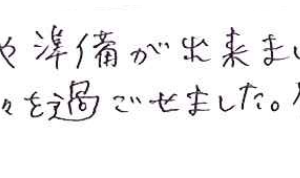 や準備が出来まし
々を過ごせました。